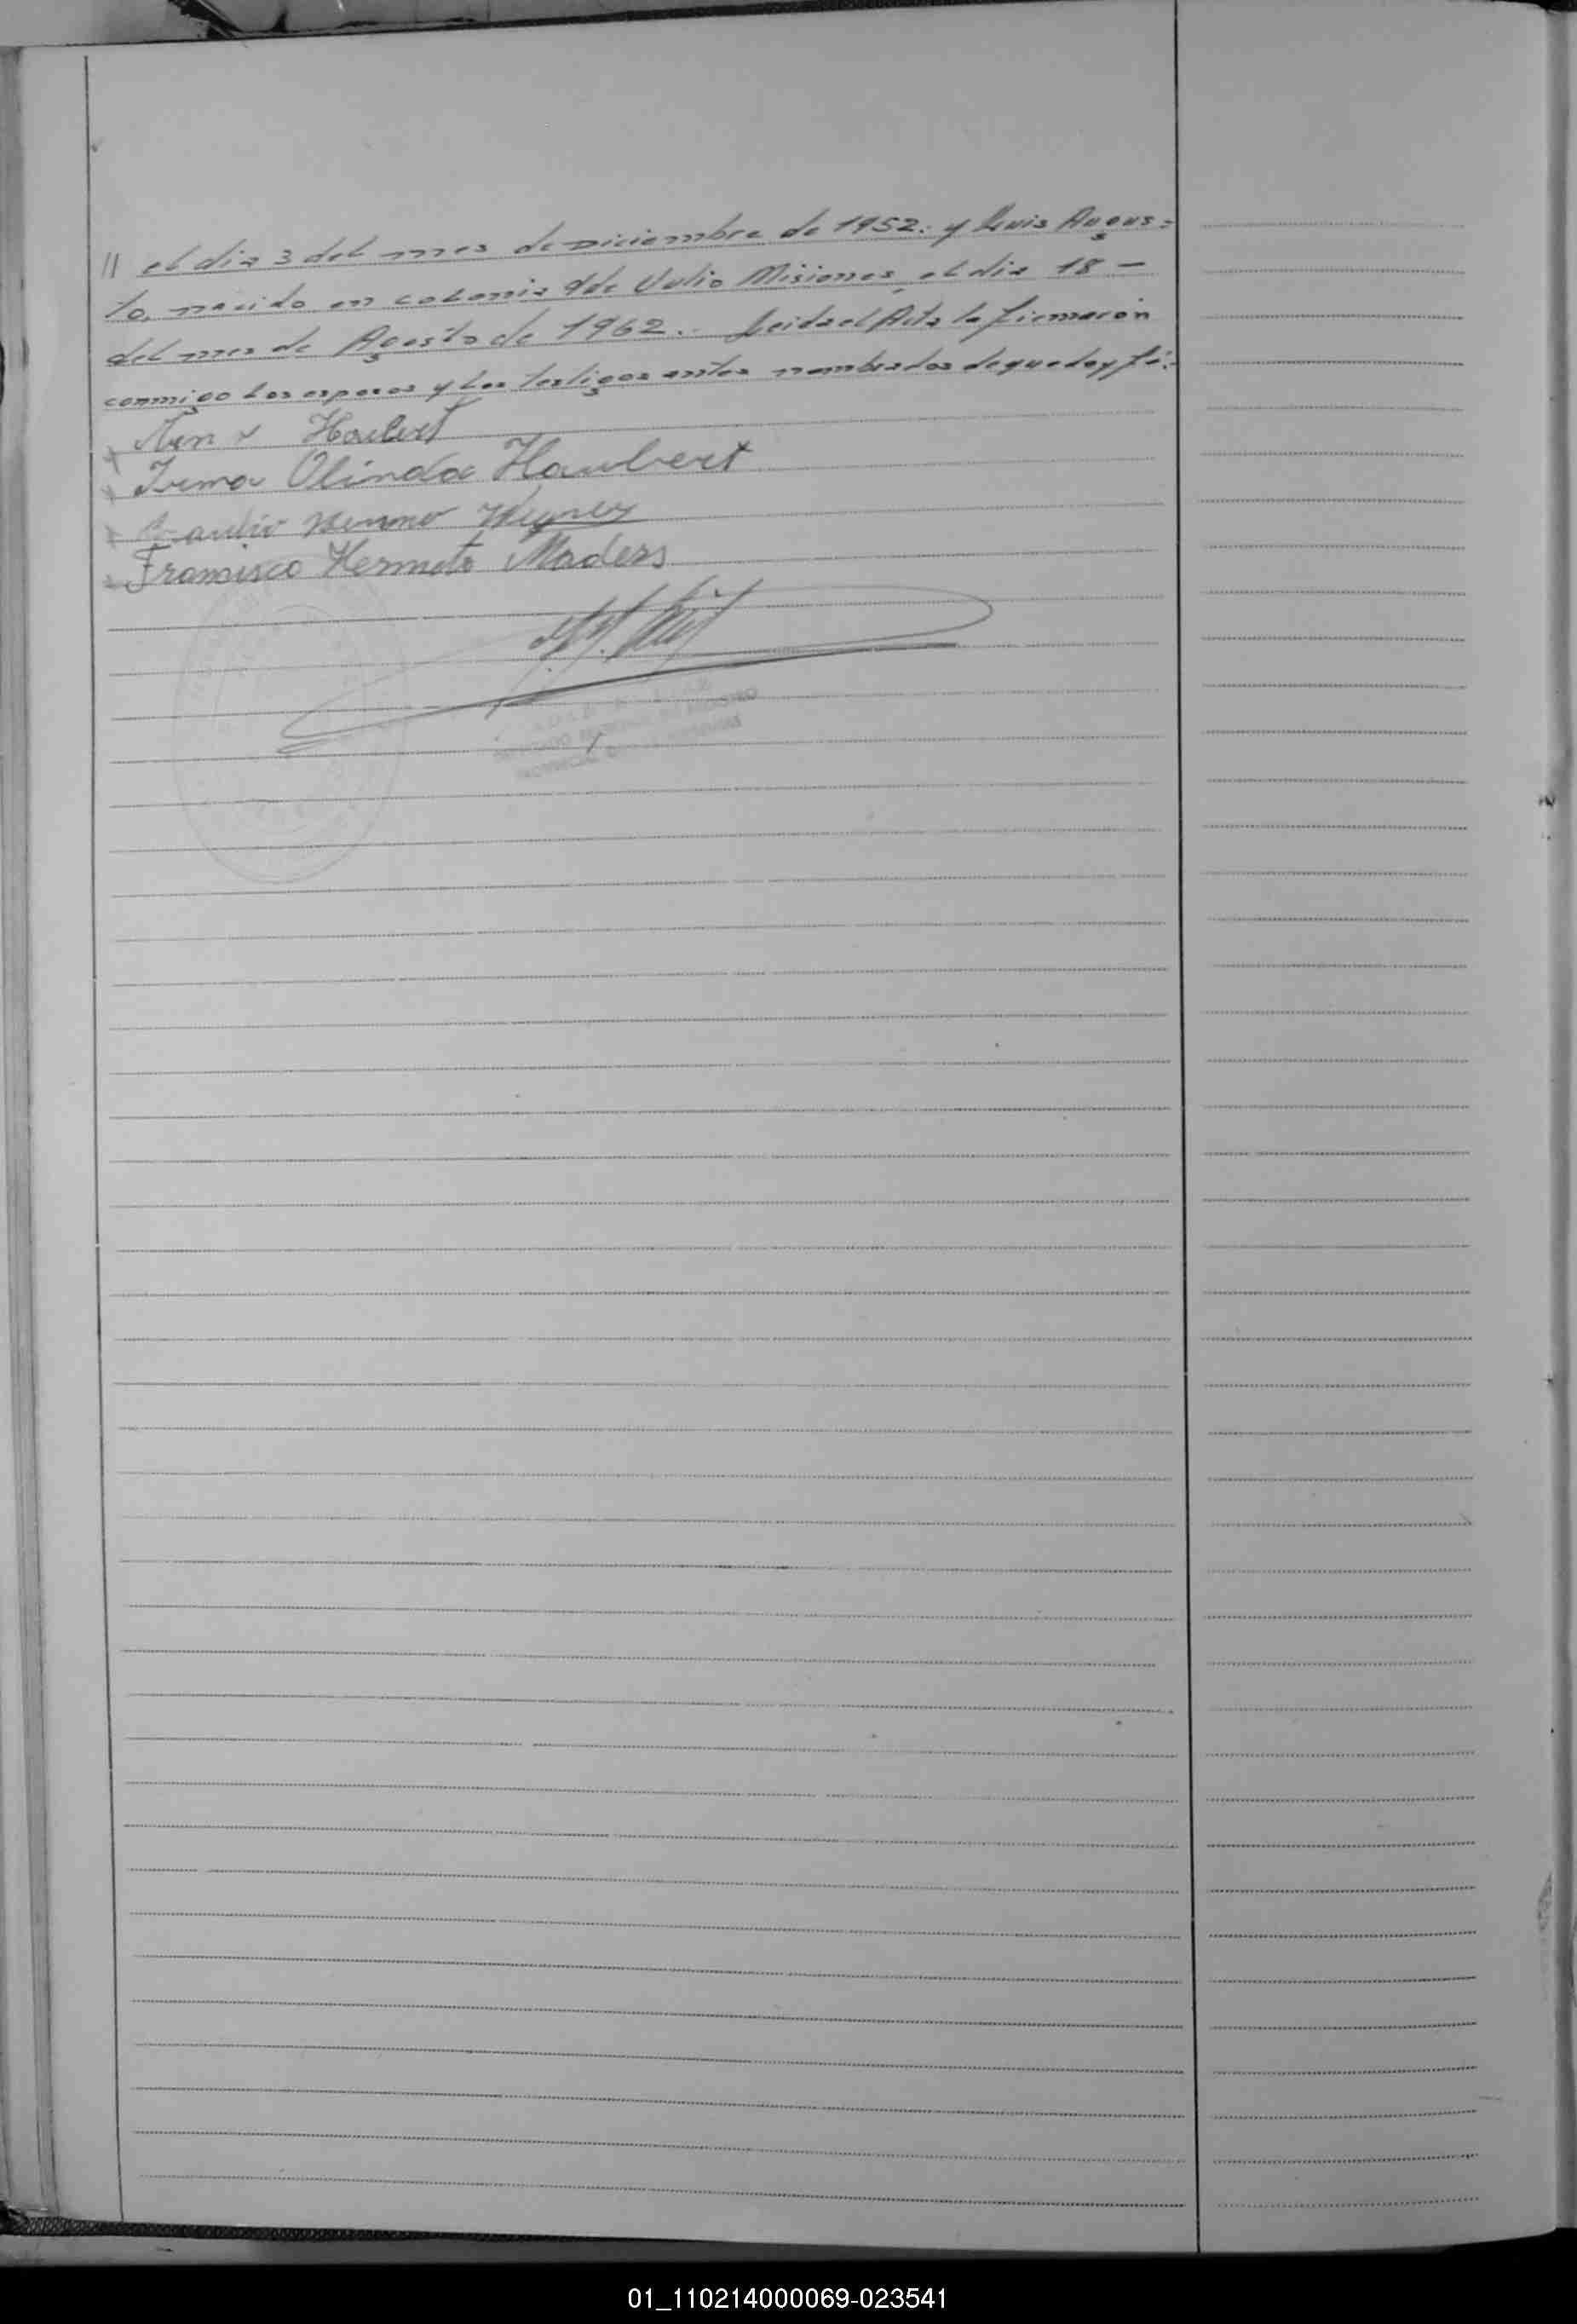 // el dia 3 del mes de Diciembre de 1952. y Luis Augus=
to, nacido en colonia 9 de Julio Misiones, el dia 18 -
del mes de Agosto de 1962.. Leida el Acta la firmaron
conmigo los esposos y los testigos antes nombrados de que doy fé.-
Haubert
Irma Olinda Haubert
Benno Wegner
Francisco Hermeto Maders
01_110214000069-023541